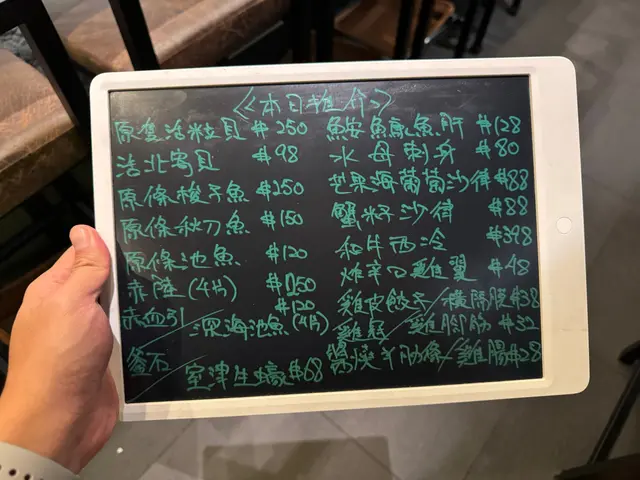 《本日推介》
原隻活粒貝 $250
活北寄貝 $98
原條梭子魚 $250
原條秋刀魚 $150
原條池魚 $120
赤陸(4片) $150
赤血引/深海池魚(4片) $120
釜石/室津生蠔$68
鮟鱇魚肝 $128
水母刺身 $80
芒果海葡萄沙律$88
蟹籽沙律 $88
和牛西冷 $398
炸辛口雞翼 $48
雞皮餃子/橫隔膜$38
雞冠/雞腳筋$32
牛肋條/雞腸$28